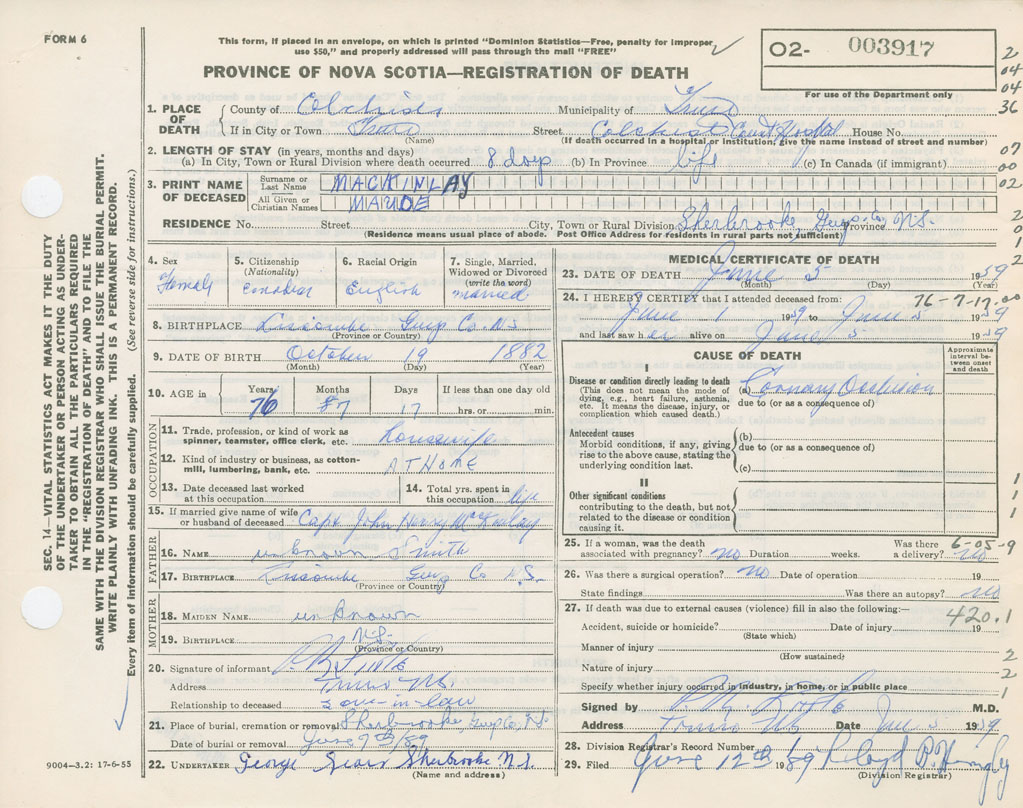 FORM 6
This form, if placed in an envelope, on which is printed "Dominion Statistics—Free, penalty for improper
use $50," and properly addressed will pass through the mail "FREE"
O2- 003917
For use of the Department only
PROVINCE OF NOVA SCOTIA—REGISTRATION OF DEATH
2
04
04
36
07
00
02
2
0
1
2
1. PLACE OF DEATH County of Colchister Municipality of Truro
If in City or Town Truro Street Colchist Count Hospital House No.
(Name) (If death occurred in a hospital or institution, give the name instead of street and number)
2. LENGTH OF STAY (in years, months and days)
(a) In City, Town or Rural Division where death occurred 8 days (b) In Province life (c) In Canada (if immigrant)
3. PRINT NAME OF DECEASED Surname or Last Name MACKINLAY
All Given or Christian Names MAUDE
RESIDENCE No. Street City, Town or Rural Division Sherbrooke, Guys. Co, Province N.S.
(Residence means usual place of abode. Post Office Address for residents in rural parts not sufficient)
4. Sex Female
5. Citizenship (Nationality) Canadian
6. Racial Origin English
7. Single, Married, Widowed or Divorced (write the word) married
8. BIRTHPLACE Liscombe Guys Co. N.S
(Province or Country)
9. DATE OF BIRTH October 19 1882
(Month) (Day) (Year)
10. AGE in Years 76 Months 7 Days 17 If less than one day old hrs. or min.
OCCUPATION
11. Trade, profession or kind of work as spinner, teamster, office clerk, etc. Housewife
12. Kind of industry or business, as cotton-mill, lumbering, bank, etc. AT HOME
13. Date deceased last worked at this occupation
14. Total yrs. spent in this occupation life
15. If married give name of wife or husband of deceased Capt John Henry McKinlay
FATHER
16. NAME unknown Smith
17. BIRTHPLACE Liscombe Guys Co N.S.
(Province or Country)
MOTHER
18. MAIDEN NAME unknown
19. BIRTHPLACE N.S.
(Province or Country)
20. Signature of informant
Address Truro N.S.
Relationship to deceased son-in-law
21. Place of burial, cremation or removal Sherbrooke, Guys Co, N.S.
Date of burial or removal June 7th/59
22. UNDERTAKER George Sherbrooke N.S.
(Name and address)
MEDICAL CERTIFICATE OF DEATH
23. DATE OF DEATH June 5 1959
(Month) (Day) (Year)
24. I HEREBY CERTIFY that I attended deceased from: 76-7-17.00
June 1 1959 to June 5 1959
and last saw her alive on June 5 1959
CAUSE OF DEATH
Approximate interval between onset and death
I
Disease or condition directly leading to death
(This does not mean the mode of dying, e.g., heart failure, asthenia, etc. It means the disease, injury, or complication which caused death.)
(a) Coronary Occlusion
due to (or as a consequence of)
Antecedent causes
Morbid conditions, if any, giving rise to the above cause, stating the underlying condition last.
(b)
due to (or as a consequence of)
(c)
II
Other significant conditions
contributing to the death, but not related to the disease or condition causing it.
1
1
1
25. If a woman, was the death associated with pregnancy? No Duration weeks. Was there a delivery? No
6-05-9
26. Was there a surgical operation? No Date of operation 19
State findings Was there an autopsy? No
27. If death was due to external causes (violence) fill in also the following:—
420.1
Accident, suicide or homicide? Date of injury 19
(State which)
Manner of injury 2
(How sustained)
Nature of injury 2
Specify whether injury occurred in industry, in home, or in public place 1
Signed by M.D.
Address Truro NS Date June 5 1959
28. Division Registrar's Record Number
29. Filed June 12th 1959
(Division Registrar)
SEC. 14—VITAL STATISTICS ACT MAKES IT THE DUTY
OF THE UNDERTAKER OR PERSON ACTING AS UNDER-
TAKER TO OBTAIN ALL THE PARTICULARS REQUIRED
IN THE "REGISTRATION OF DEATH" AND TO FILE THE
SAME WITH THE DIVISION REGISTRAR WHO SHALL ISSUE THE BURIAL PERMIT.
WRITE PLAINLY WITH UNFADING INK. THIS IS A PERMANENT RECORD.
Every item of information should be carefully supplied. (See reverse side for instructions.)
9004-3.2: 17-6-55